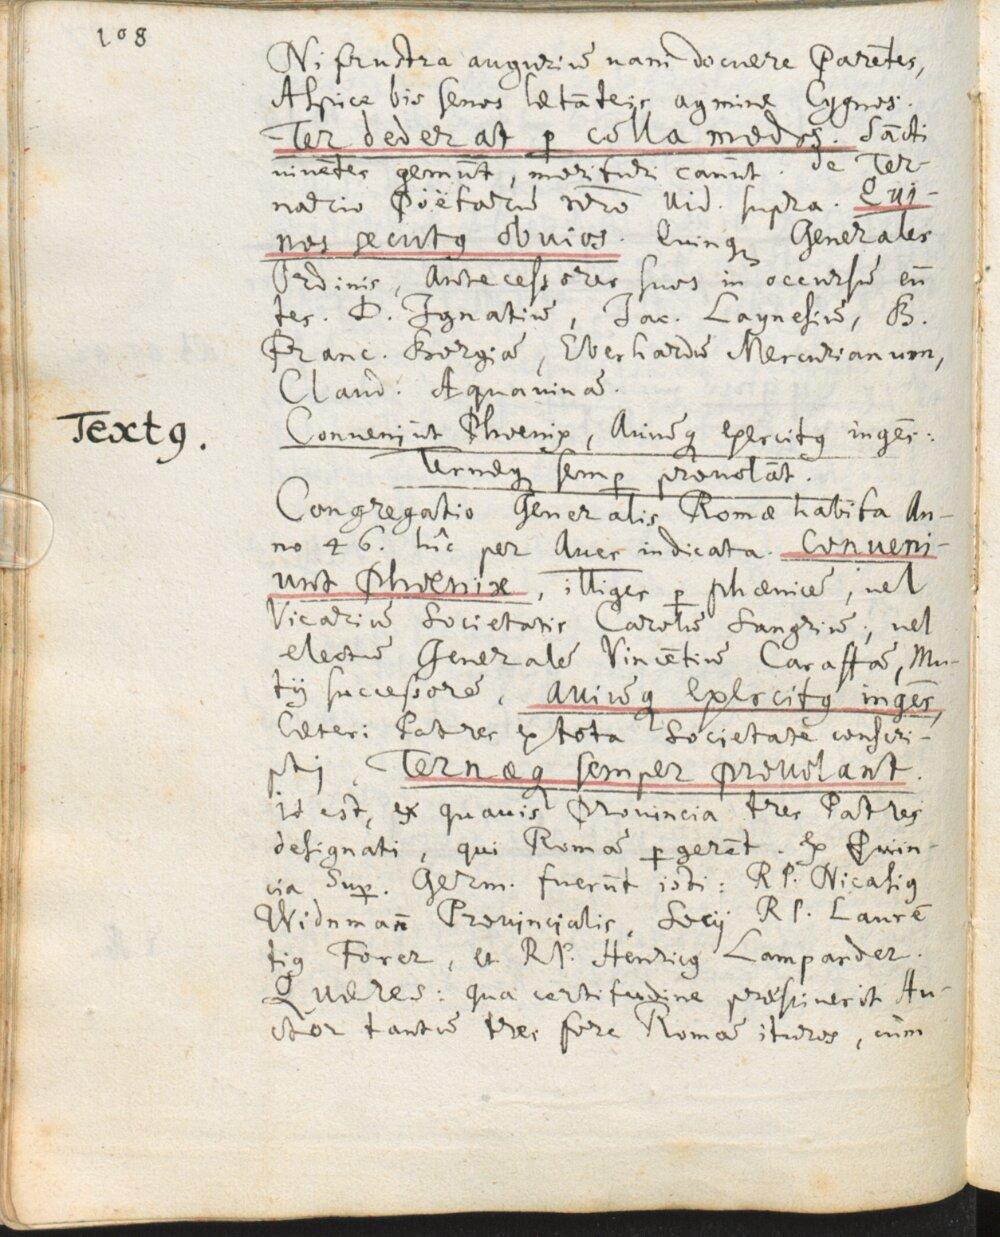 108
Ni frustra auguriū nanī docuere Parētes,
Aspice bis senos lætāteis agmine Cygnos.
Ter dederat p colla modos. Sācti
uiuētes gemūt, morituri canūt. de Ter-
nario Poëtarū verò uid. supra. Qui-
nos secutꝰ obuios. Quinqꝫ Generales
Ordinis, Antecessores suos in occursū eū
tes. D. Ignatiū, Jac. Laynesiū, B.
Franc. Borgiā, Eberhardū Mercurianum,
Claud. Aquauinā.
Textꝰ.
Conueniūt Phœnix, Auiūqꝫ exercitꝰ ingēs:
Ternæqꝫ semp prouolāt.
Congregatio Generalis Romæ habita An-
no 46. hîc per Aues indicata. Conueni-
unt Phœnix, illiges p phœnicē, uel
Vicariū Societatis Carolū Sangriū, uel
electū Generalē Vincētiū Caraffā, Mu-
tij successorē. Auiūqꝫ exercitꝰ ingēs,
Cæteri Patres ex tota Societate conscri-
ptj. Ternæqꝫ semper prouolant.
id est, ex quauis Prouincia tres Patres
designati, qui Romā pgerēt. Ex Prouin-
cia Sup. Germ. fuerūt isti: R.P. Nicasiꝰ
Widnmañ Prouincialis, Socij R.P. Laurē
tiꝰ Forer, et R.P. Henricꝰ Lamparder.
Quæres: qua certitudine præsciuerit Au-
ctor tantū tres fore Romā ituros, cùm